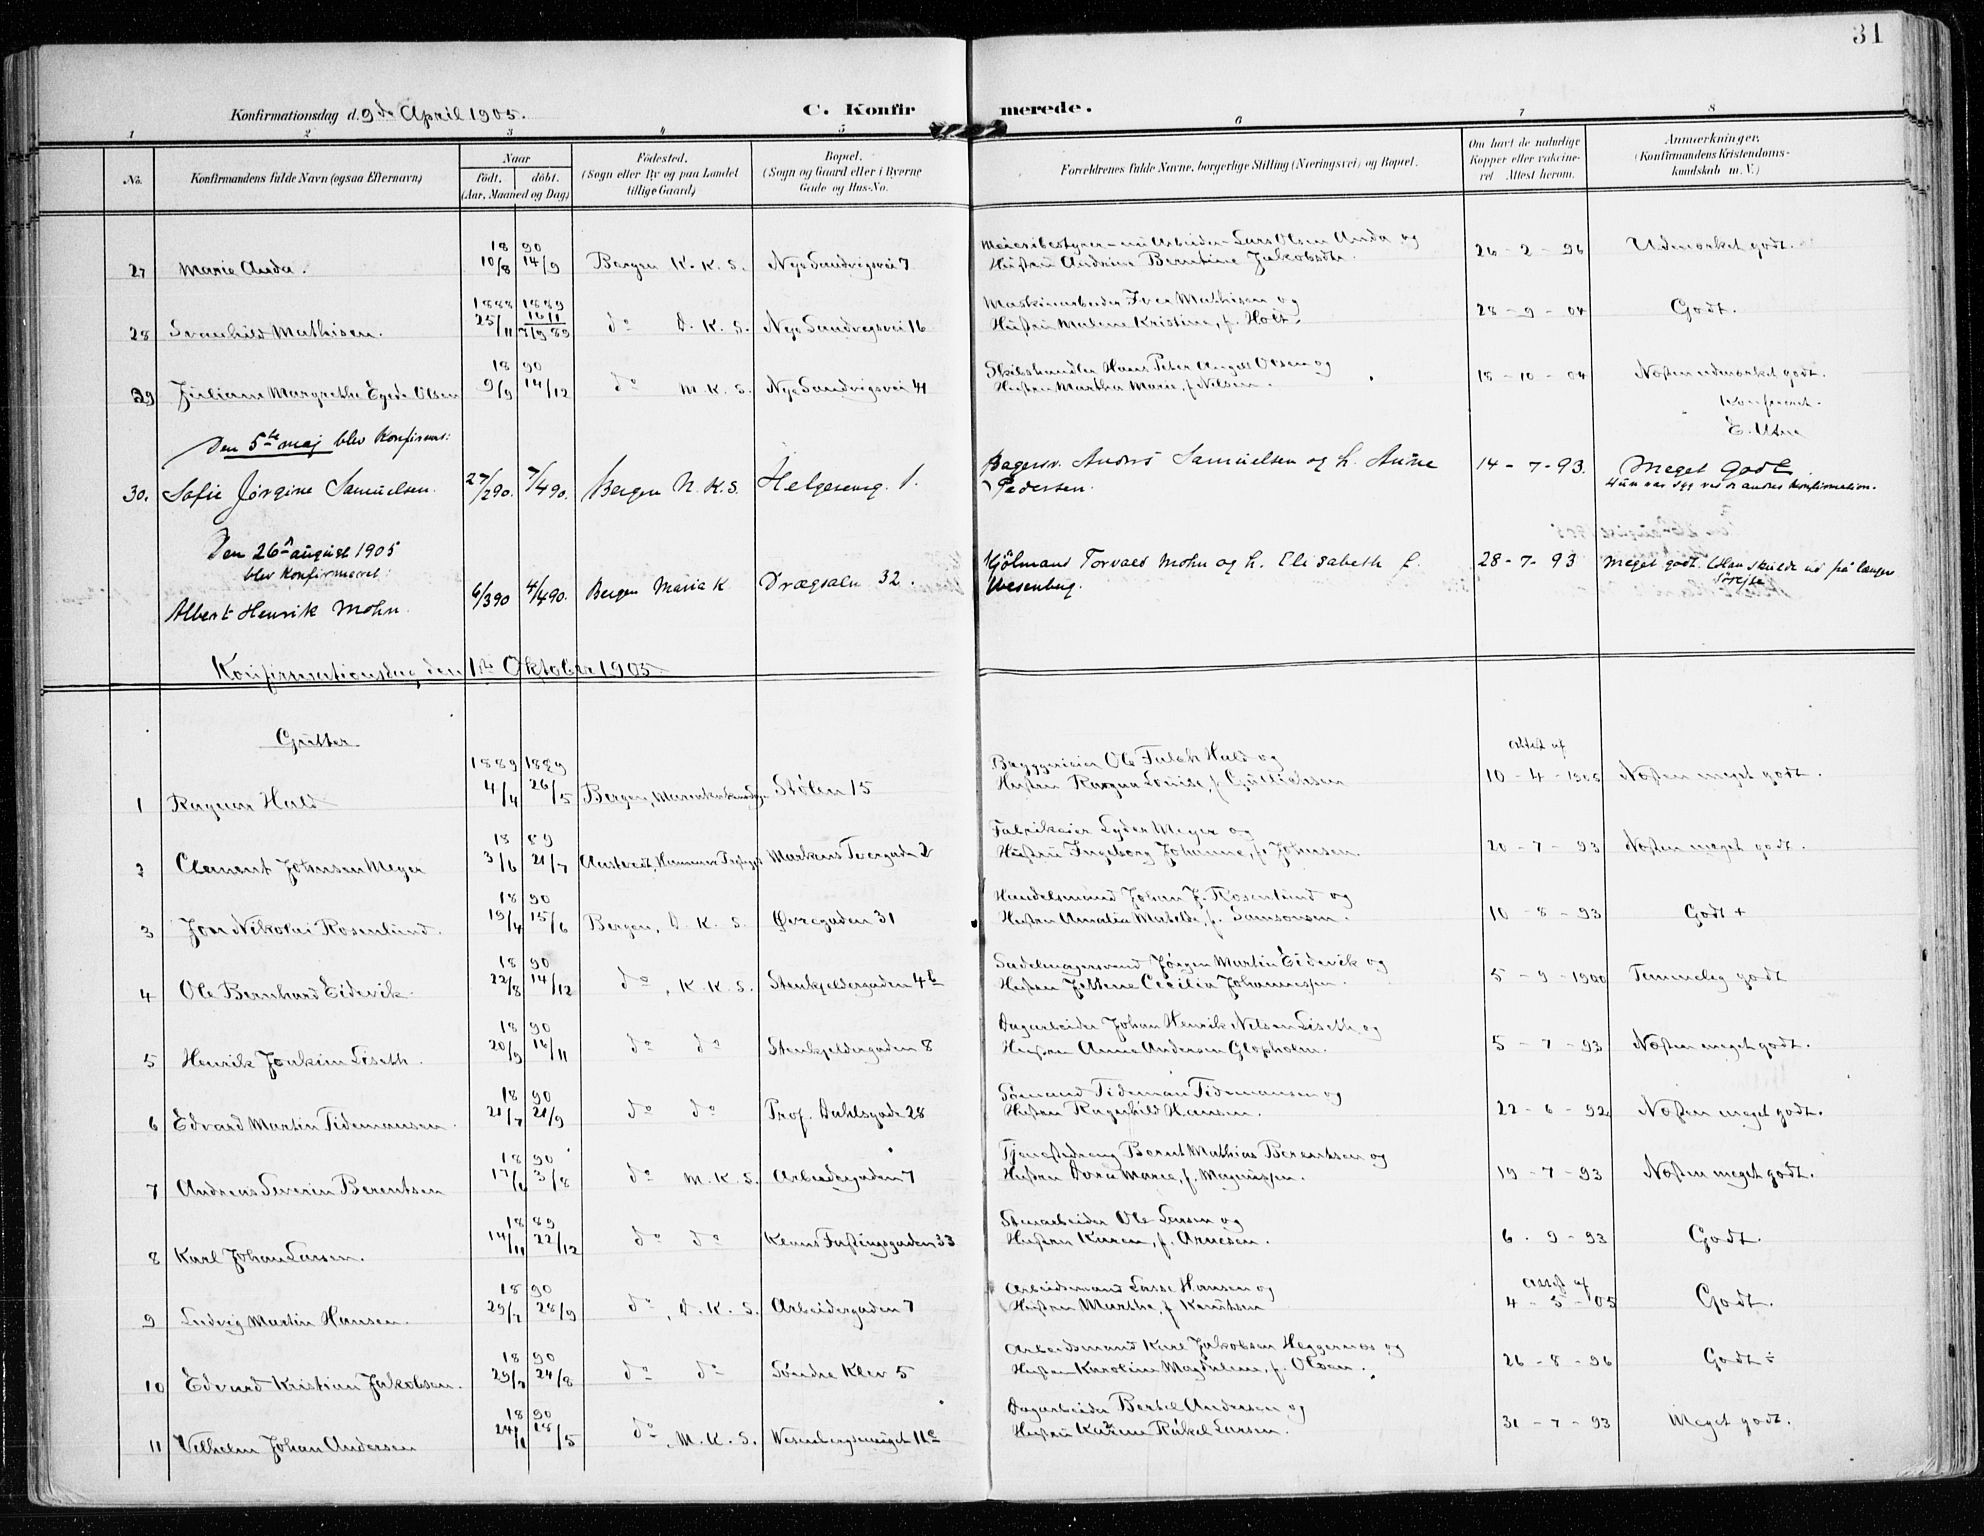 31
Konfirmationsdag d. 9de April 1905.
C. Konfirmerede.
1 2 3 4 5 6 7 8
No.
Konfirmandens fulde Navn (ogsaa Efternavn)
Naar
født. døbt.
(Aar, Maaned og Dag)
Fødested.
(Sogn eller By og paa Landet
tillige Gaard)
Bopæl.
(Sogn og Gaard eller i Byerne
Gade og Hus-No.
Forældrenes fulde Navne, borgerlige Stilling (Næringsvei) og Bopæl.
Om havt de naturlige
Kopper eller vakcine-
ret Attest herom.
Anmærkninger.
(Konfirmandens Kristendoms-
kundskab m. V.)
18 90 Meieribestyrer - nu Arbeider - Lars Olsen Anda og
27 Marie Anda. 10/8 14/9 Bergen K. K. S. Nye Sandvigsvei 7 Hustru Andrine Berntine Jakobsdtr. 26-2-96 Udmærket godt.
1888 1889 Maskinarbeider Iver Mathisen og
28 Svanhild Mathisen. 25/11 16/1 7/9 89 do D. K. S. Nye Sandvigsvei 16 Hustru Malene Kristine, f. Holt. 28-9-04 Godt.
18 90 Skibshandler Hans Peter Angell Olsen og
29 Juliane Margrethe Egede Olsen 9/9 14/12 do M. K. S. Nye Sandvigsvei 41 Hustru Martha Marie, f. Nilsen. 18-10-04 Næsten udmærket godt.
Konfereret.
E. Utne
Den 5te maj blev konfirmert:
30. Sofie Jørgine Samuelsen. 27/2 90. 7/4 90. Bergen N. K. S. Helgesensg. 1. Bagersv. Andrs Samuelsen og h. Anne 14-7-93. Meget godt.
Pedersen. Hun var syg ved de andres konfirmation.
Den 26de august 1905
blev konfirmeret:
Albert Henrik Mohn. 6/3 90 4/4 90. Bergen Maria K. Drægsalm. 32. Kjølmand Torvald Mohn og h. Elisabeth f. 28-7-93 Meget godt. (Han skulde ud på længre
Wesenberg. sørejse
Konfirmationsdag den 1ste Oktober 1905
Gutter
1889 1889 Bryggerieier Ole Falck Hald og Attest af
1 Ragnar Hald 4/4 26/5 Bergen, Mariakirkens Sogn Stølen 15 Hustru Ragna Lovise, f. Gulliksen 10-4-1905 Næsten meget godt.
18 89 Fabrikeier Lyder Meyer og
2 Clement Johnsen Meyer 3/6 21/7 Aastvedt, Hammer Præstegd. Markens Tvergade 2 Hustru Ingeborg Johanne, f. Johnsen. 20-7-93 Næsten meget godt.
18 90 Handelsmand Johan J. Rosenlund og
3 Jon Nikolai Rosenlund. 19/4 15/6 Bergen, D. K. S. Øvregaden 31 Hustru Amalia Mathilde, f. Samsonsen. 10-8-93 Godt +
18 90 Sadelmagersvend Jørgen Martin Eidevik og
4 Ole Bernhard Eidevik 22/8 14/12 do, K. K. S. Stenkjeldergaden 4b Hustru Jettene Cecilia Johannessen. 5-9-1900 Temmelig godt
18 90 Dagarbeider Johan Henrik Nilsen Liseth og
5 Henrik Joakim Liseth. 20/9 16/11 do do Stenkjeldergaden 8 Hustru Anne Andersen Glopholm. 5-7-93 Næsten meget godt.
18 90 Sømand Tideman Tidemansen og
6 Edvard Martin Tidemansen. 21/7 21/9 do do Prof. Dahlsgade 28 Hustru Ragnhild Hansen. 22-6-92 Næsten meget godt.
18 90 Tjenestedreng Bernt Mathias Berentsen og
7 Andreas Severin Berentsen 17/6 3/8 do M. K. S. Arbeidergaden 7 Hustru Dora Marie, f. Magnussen. 19-7-93 Næsten meget godt.
18 89 Stenarbeider Ole Larsen og
8 Karl Johan Larsen. 14/11 22/12 do do Klaus Fastingsgaden 33 Hustru Karen, f. Arnesen. 6-9-93 Godt.
18 90 Arbeidsmand Lasse Hansen og Attest af
9 Ludvig Martin Hansen. 29/7 28/9 do, D. K. S. Arbeidergaden 7 Hustru Marthe, f. Knudsen 4-5-05 Godt.
18 90 Arbeidsmand Karl Jakobsen Heggernæs og
10 Edvard Kristian Jakobsen. 29/7 24/8 do do Søndre Klev 5 Hustru Karoline Magdalene, f. Olsen. 26-8-96 Godt ÷
18 90 Dagarbeider Bertel Andersen og
11 Vilhelm Johan Andersen 24/1 18/5 do, M. K. S. Wesenbergsmuget 11c Hustru Karene Rakel Larsen. 31-7-93 Meget godt.